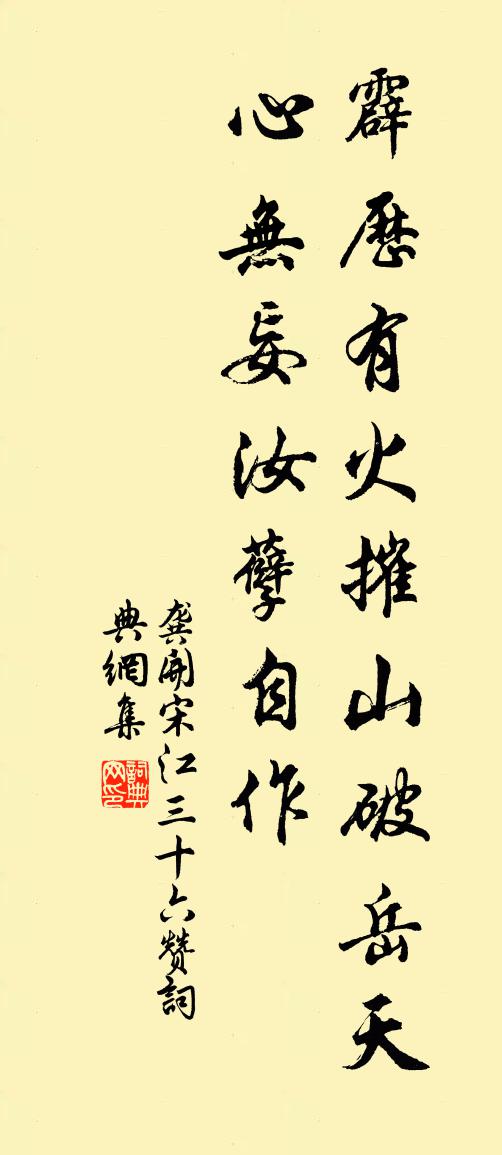 霹歷有火摧山破岳天
心無妄汝孽自作
龚開宋江三十六贊詞
典網集
詞典网印